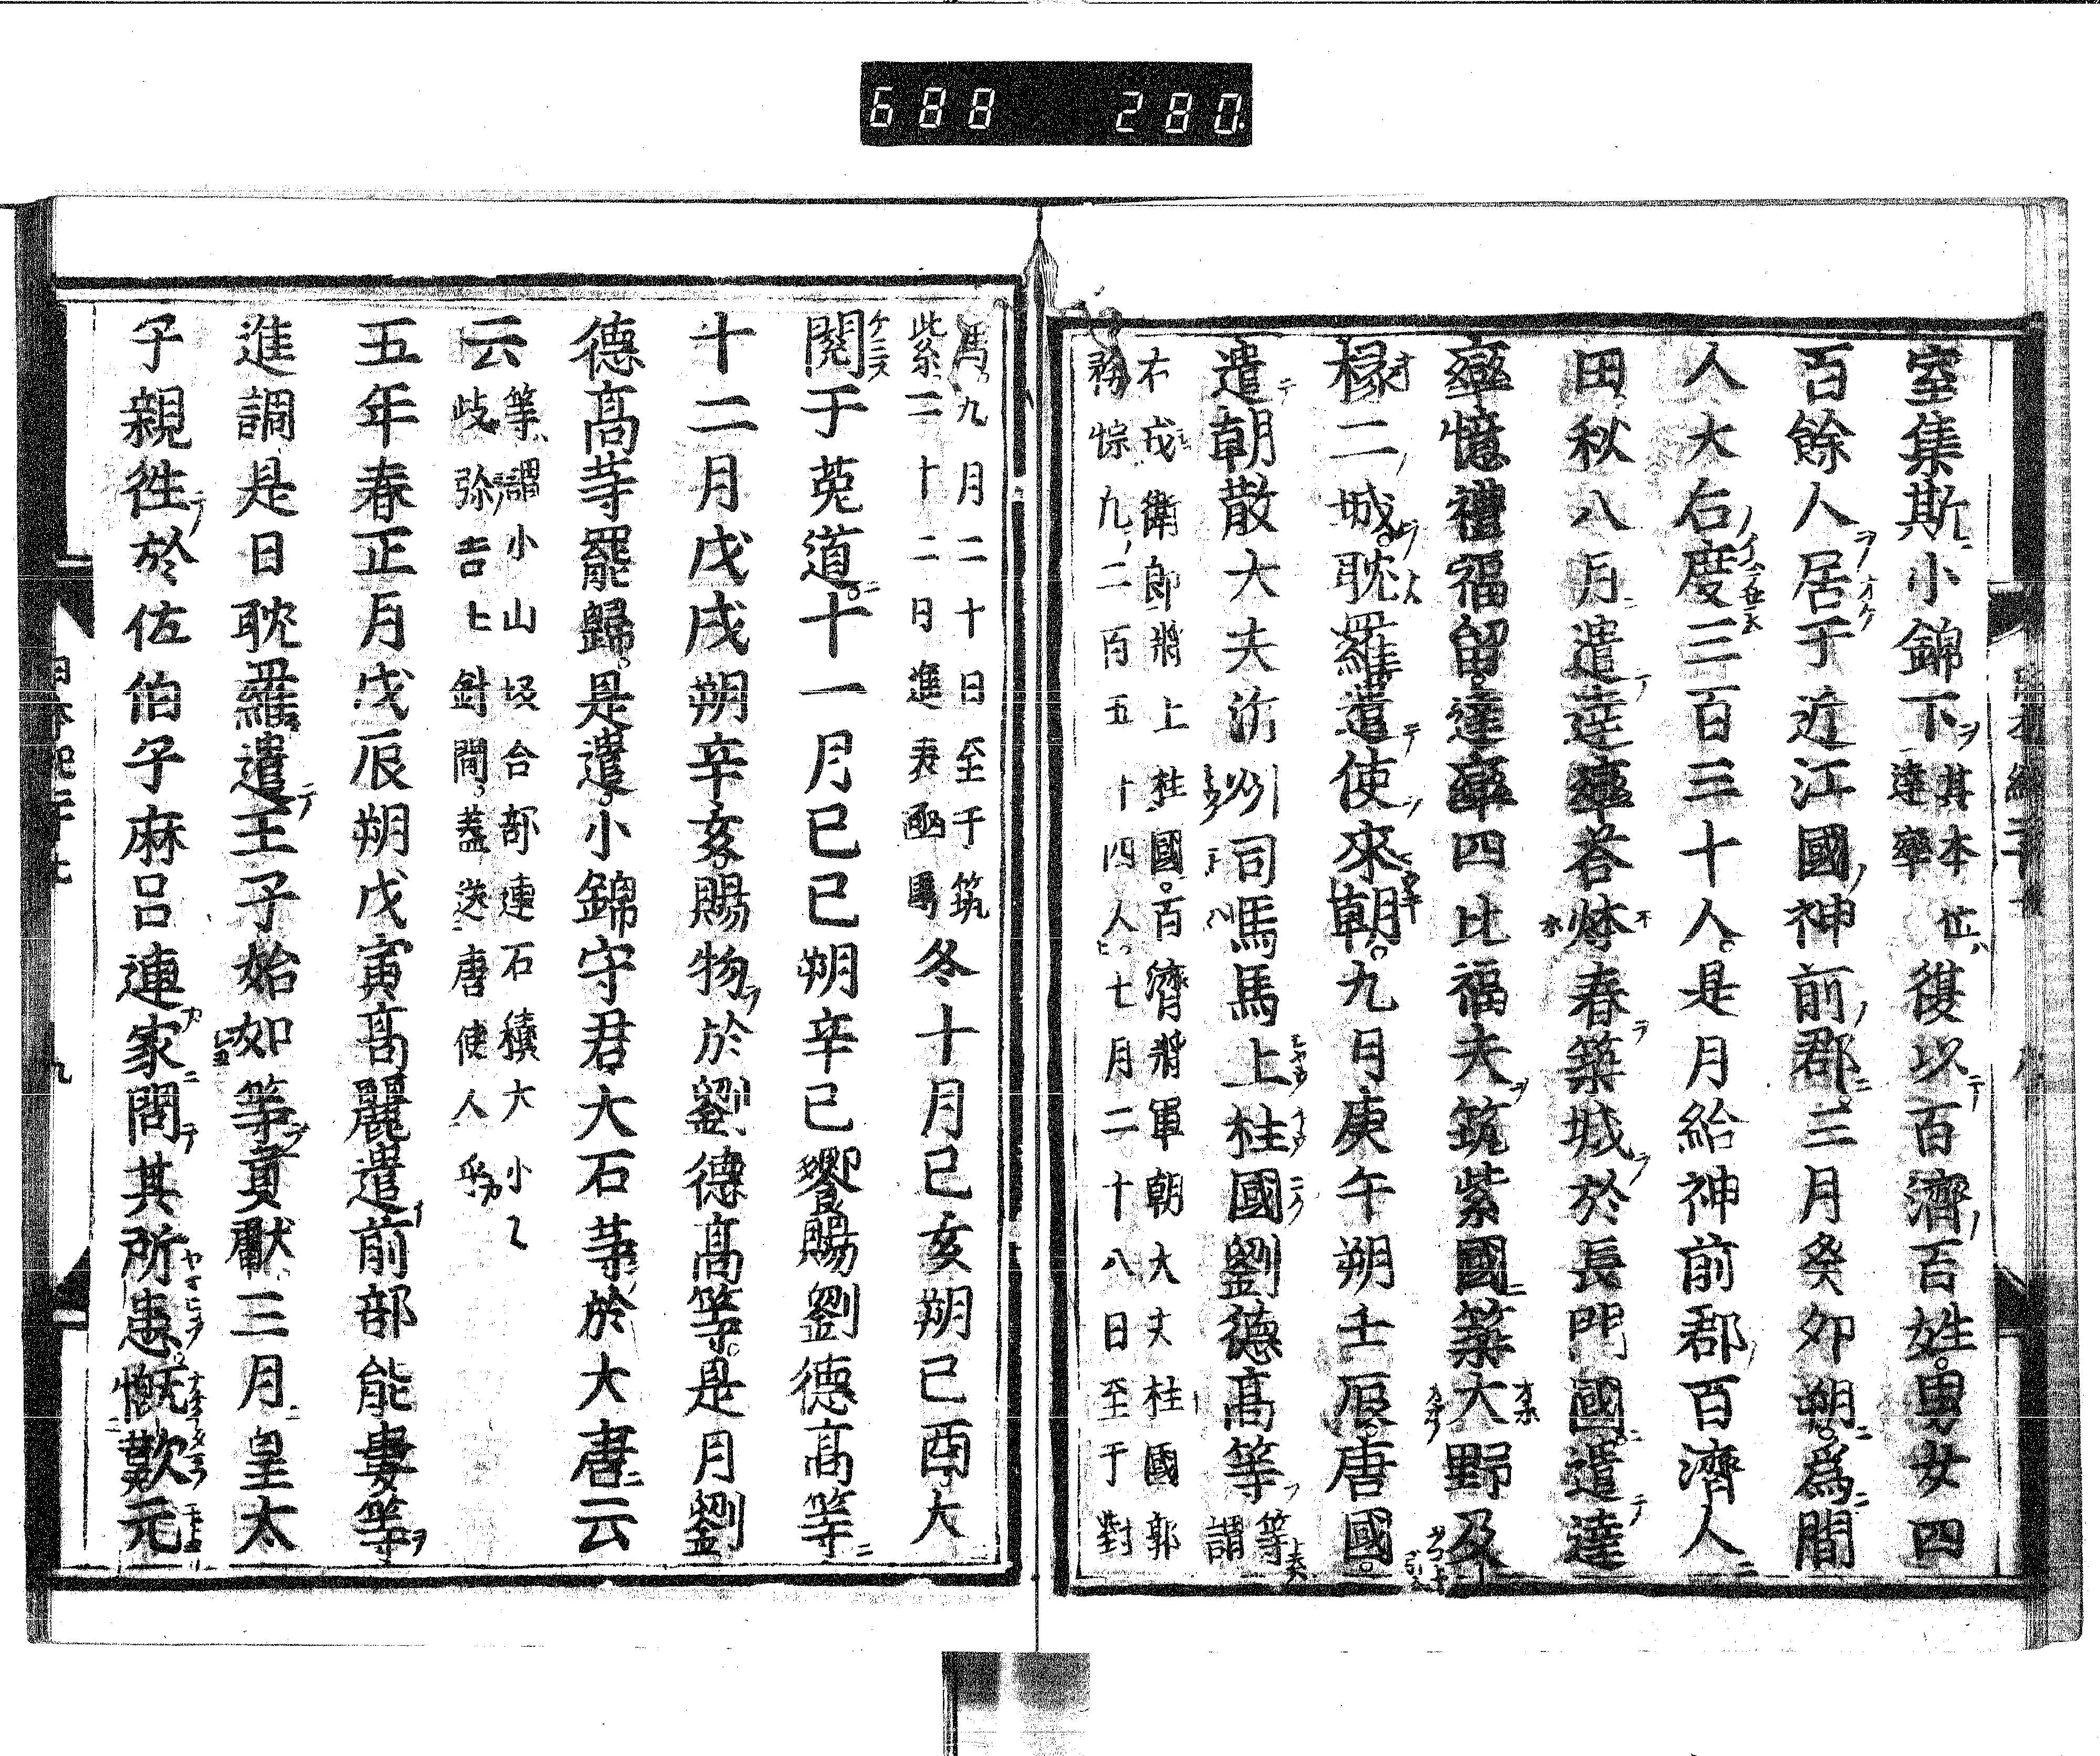 688 280
室集斯小錦下其本位達率復以百濟百姓男女四
百餘人居于近江國神前郡三月癸卯朔爲間
人大右度三百三十人是月給神前郡百濟人
田秋八月遣達率荅㶱春築城於長門國遣達
率憶禮福留達率四比福夫筑紫國築大野及
椽二城耽羅遣使來朝九月庚午朔壬辰唐國
遣朝散大夫沂州司馬馬上柱國劉德高等等謂
右戎衛郎將上柱國百濟將軍朝大夫柱國郭
務悰凢二百五十四人七月二十八日至于對
馬九月二十日至于筑
紫二十二日進表函焉冬十月己亥朔己酉大
閲于菟道十一月己巳朔辛巳饗賜劉德高等
十二月戊戌朔辛亥賜物於劉德高等是月劉
德高等罷歸是遣小錦守君大石等於大唐云
云等謂小山坂合部連石積大小乙
岐弥吉士針間蓋送唐使人乎
五年春正月戊辰朔戊寅高麗遣前部能婁等
進調是日耽羅遣王子始如等貢獻三月皇太
子親徃於佐伯子麻呂連家問其所患慨歎元